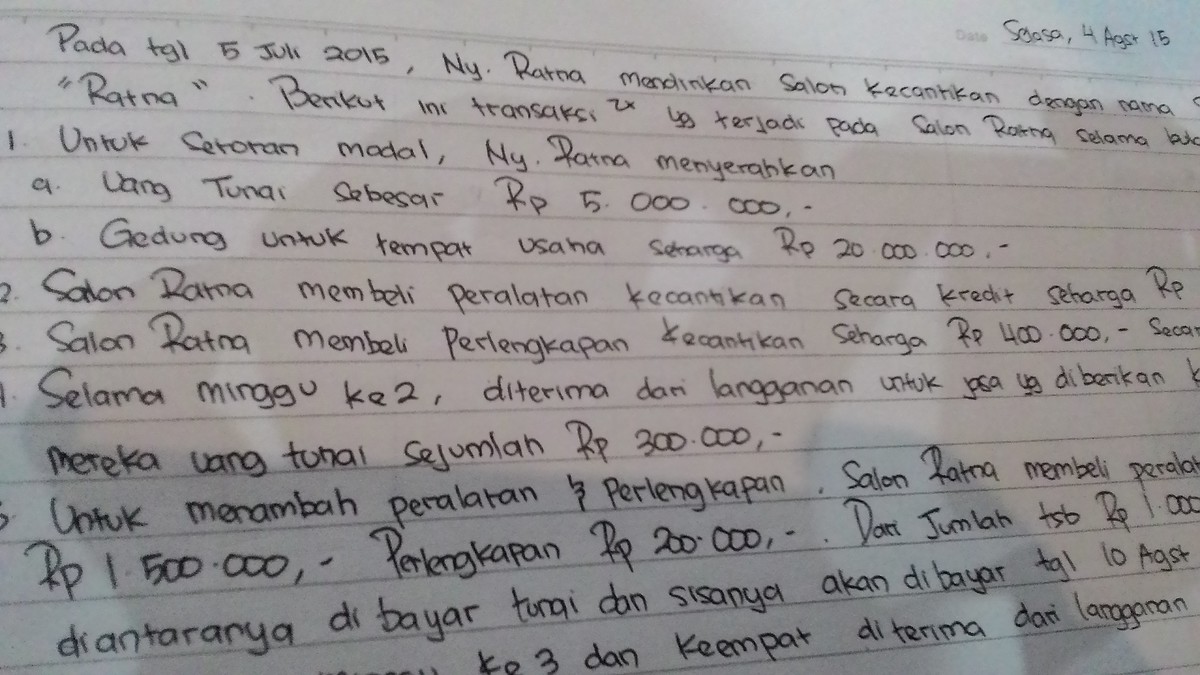 Date Selasa, 4 Agst 15
Pada tgl 5 Juli 2015, Ny. Ratna mendirikan Salon kecantikan dengan nama
"Ratna". Berikut ini transaksi 2x yg terjadi pada Salon Ratna selama
1. Untuk Setoran modal, Ny. Ratna menyerahkan
a. Uang Tunai Sebesar Rp 5.000.000,-
b. Gedung untuk tempat usaha seharga Rp 20.000.000.-
2. Salon Ratna membeli peralatan kecantikan secara kredit seharga Rp
3. Salon Ratna membeli Perlengkapan kecantikan Seharga Rp 400.000,-
Selama minggu ke 2, diterima dari langganan untuk jasa yg diberikan
mereka uang tunai sejumlah Rp 300.000,-
Untuk menambah peralatan & Perlengkapan. Salon Ratna membeli
Rp 1.500.000,- Perlengkapan Rp 200.000,-. Dari Jumlah tsb Rp 1.000
diantaranya di bayar tunai dan sisanya akan dibayar tgl 10 Agst
ke 3 dan keempat diterima dari langganan